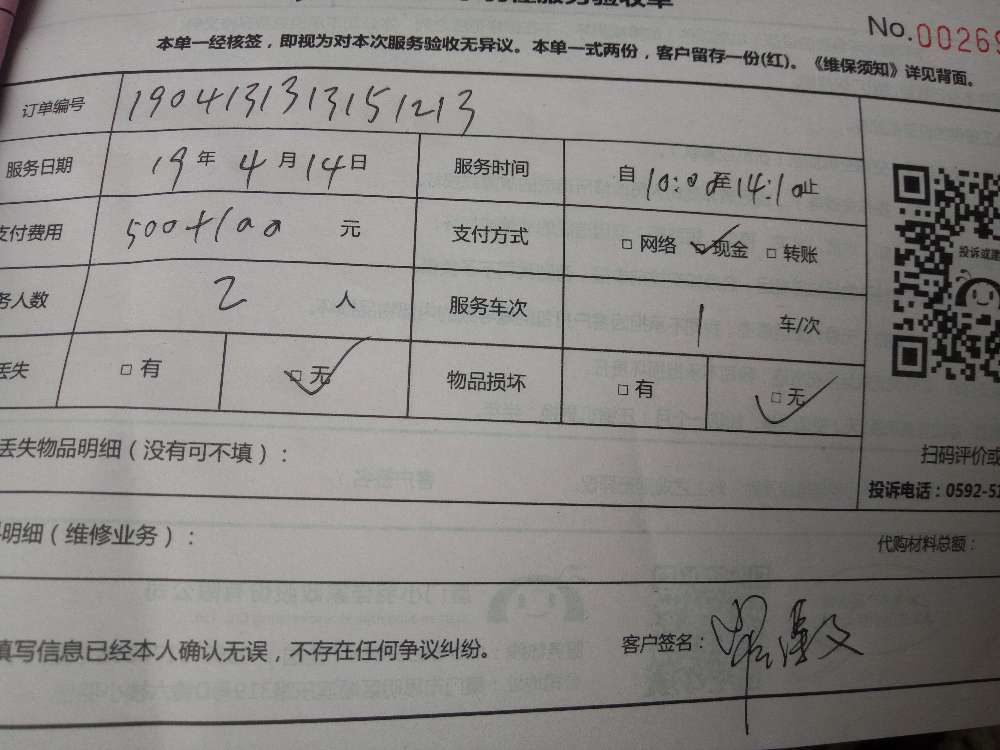 服务验收单
No. 00269
本单一经核签，即视为对本次服务验收无异议。本单一式两份，客户留存一份(红)。《维保须知》详见背面。
订单编号 1904131313151213
服务日期 19 年 4 月 14 日 服务时间 自 10:00 至 14:10 止
支付费用 500+100 元 支付方式 □ 网络 □ 现金 □ 转账
务人数 2 人 服务车次 1 车/次
丢失 □ 有 □ 无 物品损坏 □ 有 □ 无
投诉或建
丢失物品明细（没有可不填）：
扫码评价或
投诉电话：0592-51
明细（维修业务）： 代购材料总额：
填写信息已经本人确认无误，不存在任何争议纠纷。 客户签名：